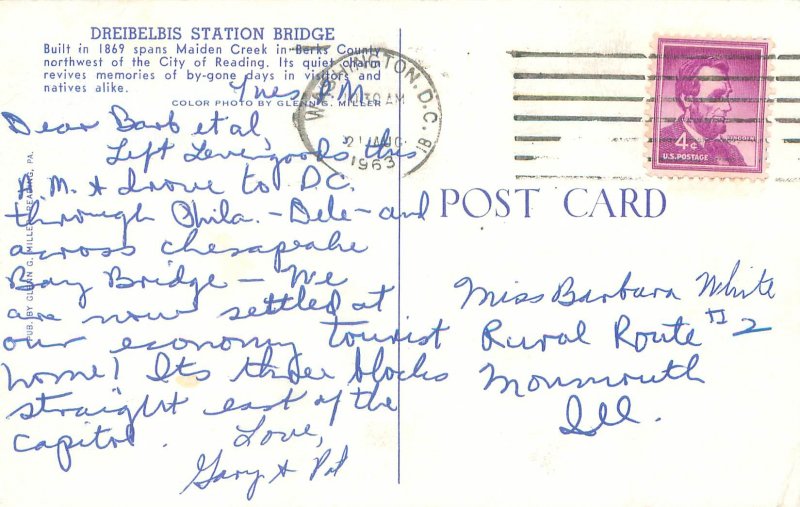 DREIBELBIS STATION BRIDGE
Built in 1869 spans Maiden Creek in Berks County
northwest of the City of Reading. Its quiet charm
revives memories of by-gone days in visitors and
natives alike.
COLOR PHOTO BY GLENN G. MILLER
Tues P.M.
Dear Barb et al,
Left Levengoods this
A.M. & drove to D.C.
through Phila. - Dele - and
across chesapeake
Bay Bridge - We
are now settled at
our economy tourist
home! Its three blocks
straight east of the
Capitol.
Love,
Gary & Pat
PUB. BY GLENN G. MILLER, READING, PA.
WASHINGTON, D.C. 18
30 AM
21 AUG
1963
LINCOLN
4¢
U.S. POSTAGE
POST CARD
Miss Barbara White
Rural Route #2
Monmouth
Ill.